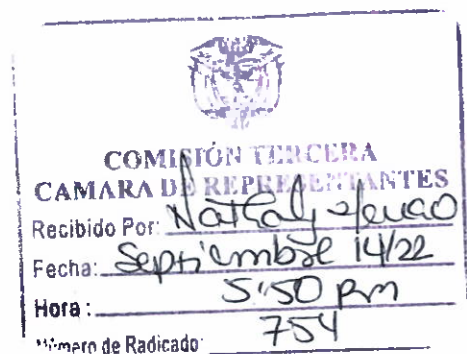 COMISIÓN TERCERA
CAMARA DE REPRESENTANTES
Recibido Por: Nathaly
Fecha: Septiembre 14/22
Hora: 5:50 pm
Número de Radicado: 754